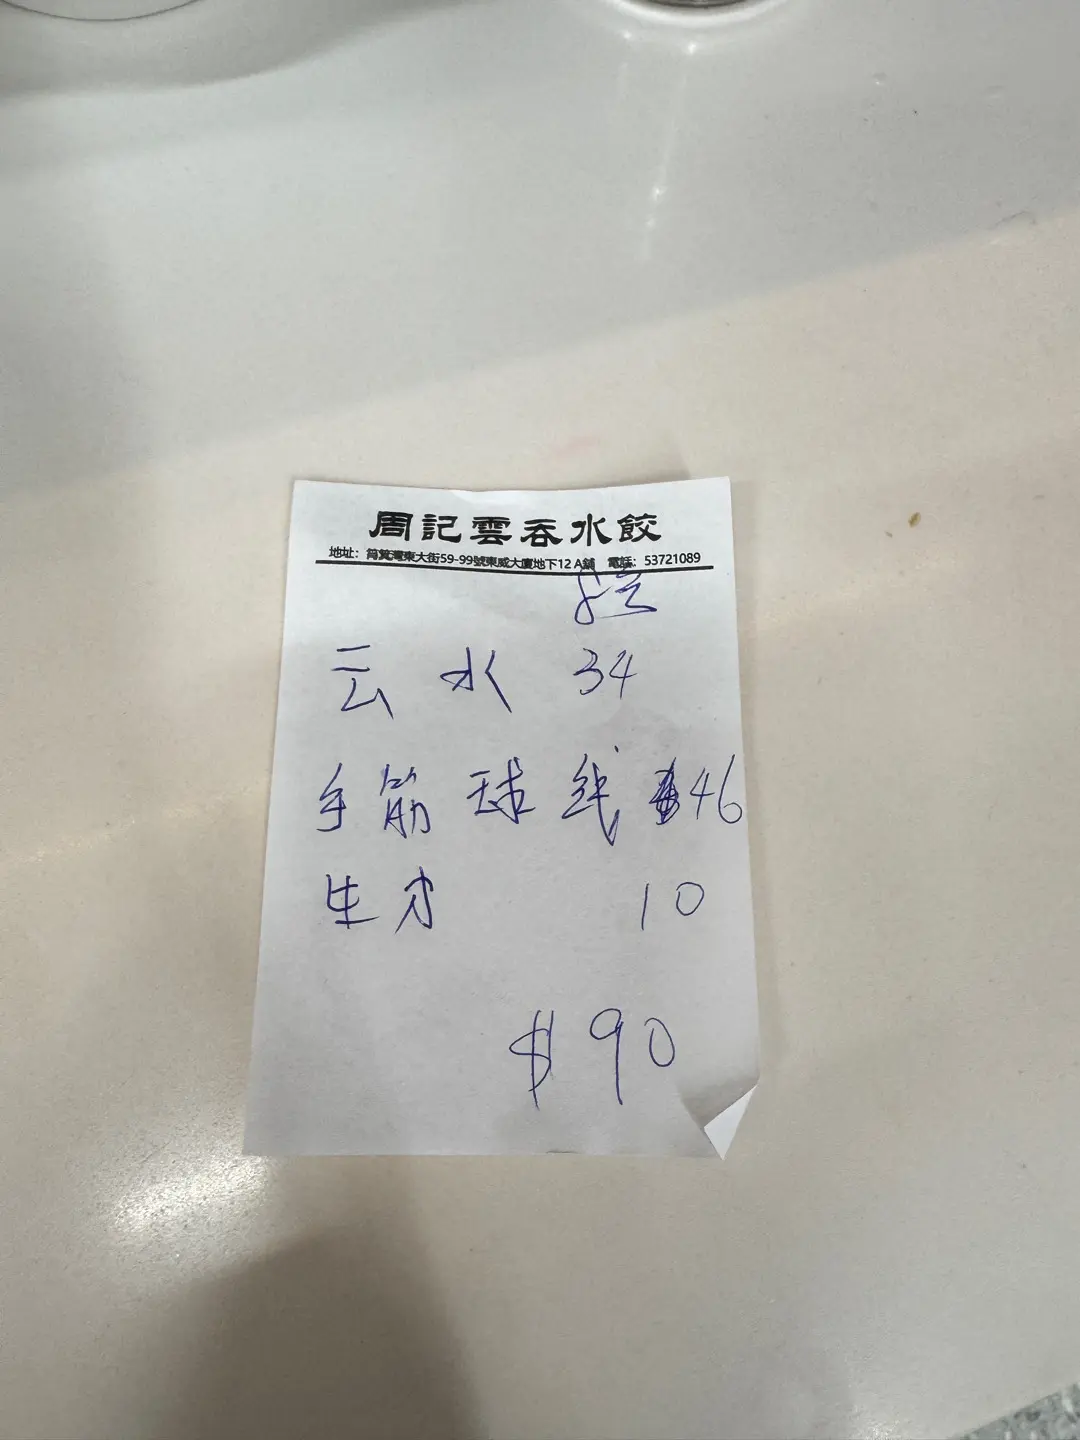 周記雲吞水餃
地址：筲箕灣東大街59-99號東威大廈地下12 A舖 電話：53721089
云 水 34
手筋 球 线 46
生才 10
$90